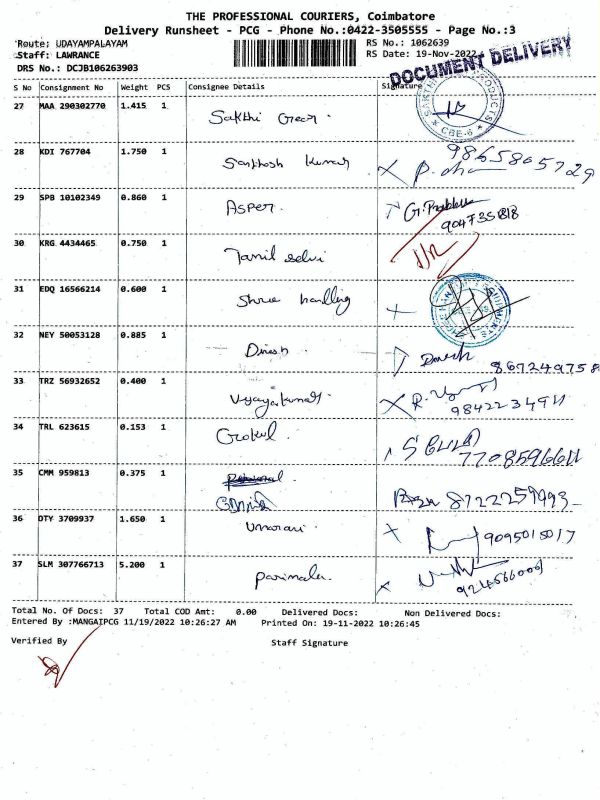 THE PROFESSIONAL COURIERS, Coimbatore
Delivery Runsheet - PCG - Phone No.:0422-3505555 - Page No.:3
Route: UDAYAMPALAYAM RS No.: 1062639
Staff: LAWRANCE RS Date: 19-Nov-2022
DRS No.: DCJB106263903
DOCUMENT DELIVERY
S No Consignment No Weight PCS Consignee Details Signature
27 MAA 290302770 1.415 1 Sakthi Gear
CBE-6
28 KDI 767704 1.750 1 Santhosh Kumar 9865805729
29 SPB 10102349 0.860 1 Asper
30 KRG 4434465 0.750 1 Tamil selvi
31 EDQ 16566214 0.600 1 Shree handling
32 NEY 50053128 0.885 1 Dinesh Dinesh
33 TRZ 56932652 0.400 1 Vijayakumar 9842234911
34 TRL 623615 0.153 1 Gokul 7708596611
35 CMM 959813 0.375 1 8722259993
36 DTY 3709937 1.650 1 Umarani 9095015017
37 SLM 307766713 5.200 1 Parimala
Total No. Of Docs: 37 Total COD Amt: 0.00 Delivered Docs: Non Delivered Docs:
Entered By :MANGAIPCG 11/19/2022 10:26:27 AM Printed On: 19-11-2022 10:26:45
Verified By Staff Signature